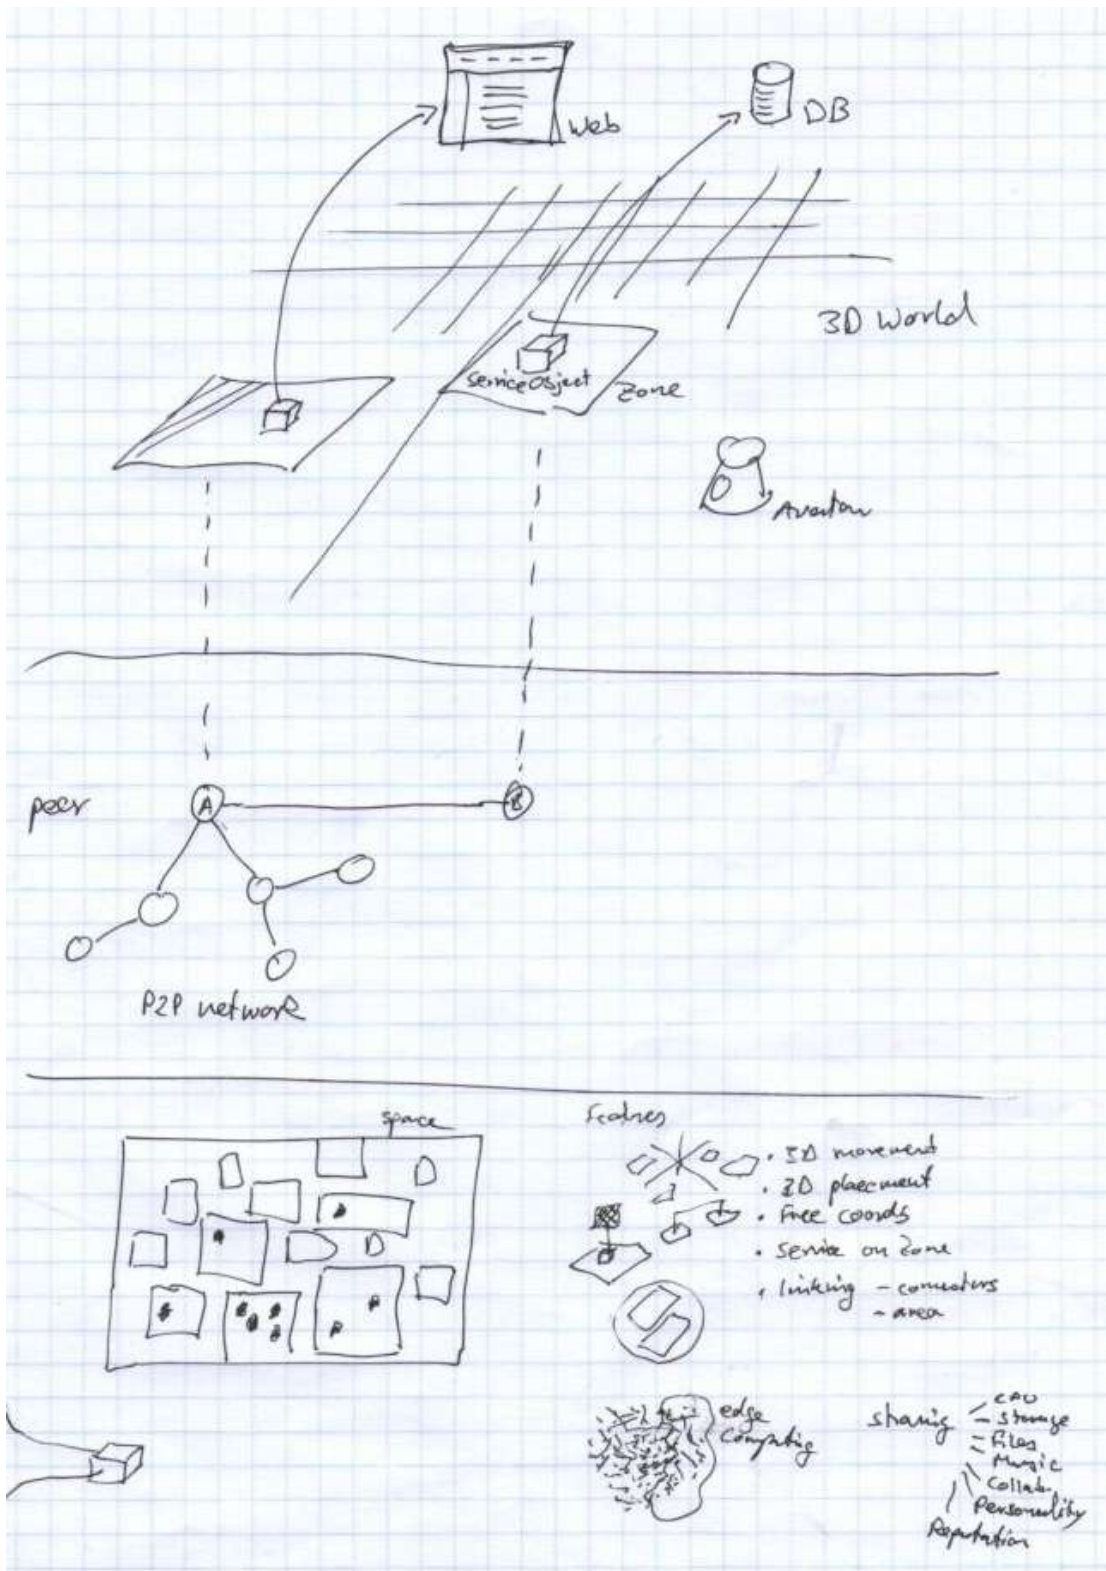 Web
DB
3D World
ServiceObject
Zone
Avatar
peer
A
B
P2P network
space
Features
• 3D movement
• 3D placement
• Free coords
• Service on Zone
• linking – connectors
– area
edge
Computing
sharing
CPU
– Storage
– Files
– Music
Collab.
Personality
Reputation